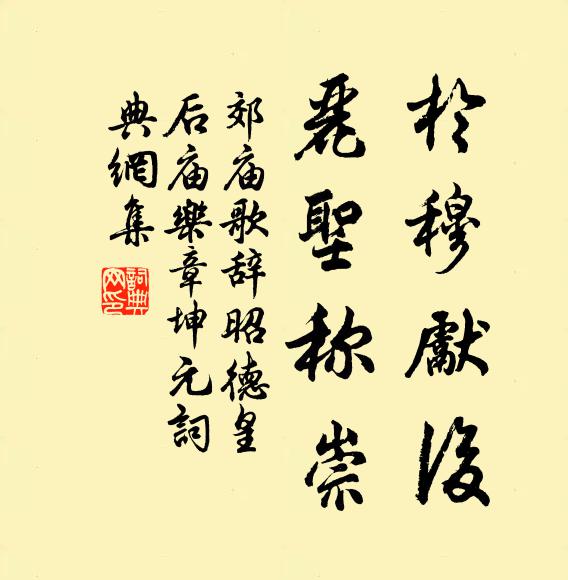 於穆獻後
麗聖称崇
郊庙歌辞昭德皇
后庙樂章坤元詞
典網集
詞典网印